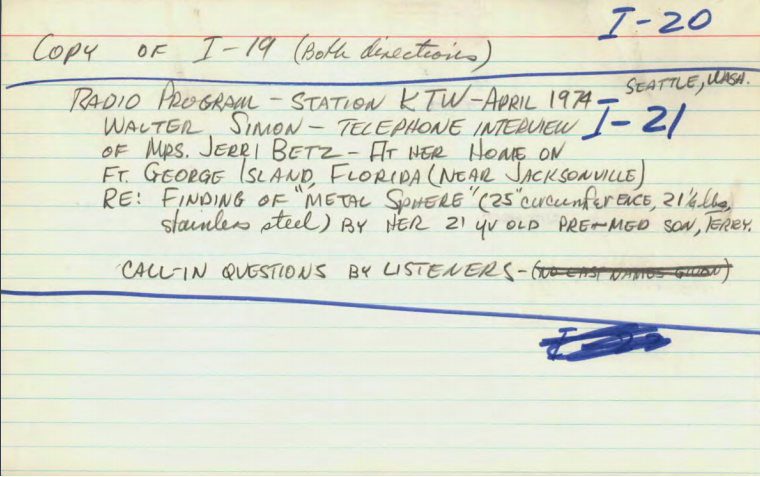 I-20
COPY OF I-19 (Both directions)
RADIO PROGRAM - STATION KTW - APRIL 1974 - SEATTLE, WASH.
WALTER SIMON - TELEPHONE INTERVIEW I-21
OF MRS. JERRI BETZ - AT HER HOME ON
FT. GEORGE ISLAND, FLORIDA (NEAR JACKSONVILLE)
RE: FINDING OF "METAL SPHERE" (25" circumference, 21¼ lbs,
stainless steel) BY HER 21 yr OLD PRE-MED SON, TERRY.
CALL-IN QUESTIONS BY LISTENERS - (NO LAST NAMES GIVEN)